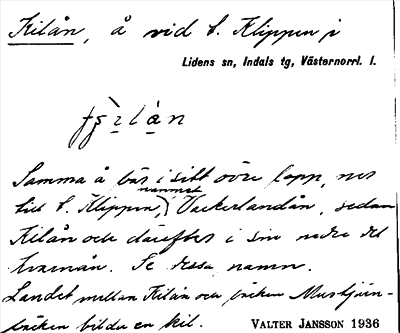 Kilån, å vid t. Klippen i
Lidens sn, Indals tg, Västernorrl. l.
Samma å bär i sitt övre lopp, ner
till t. Klippen, namnet Vackerlandån, sedan
Kilån och därefter i sin nedre del
Se dessa namn.
Landet mellan Kilån och bäcken Mustjärn-
bäcken bildar en kil.
VALTER JANSSON 1936